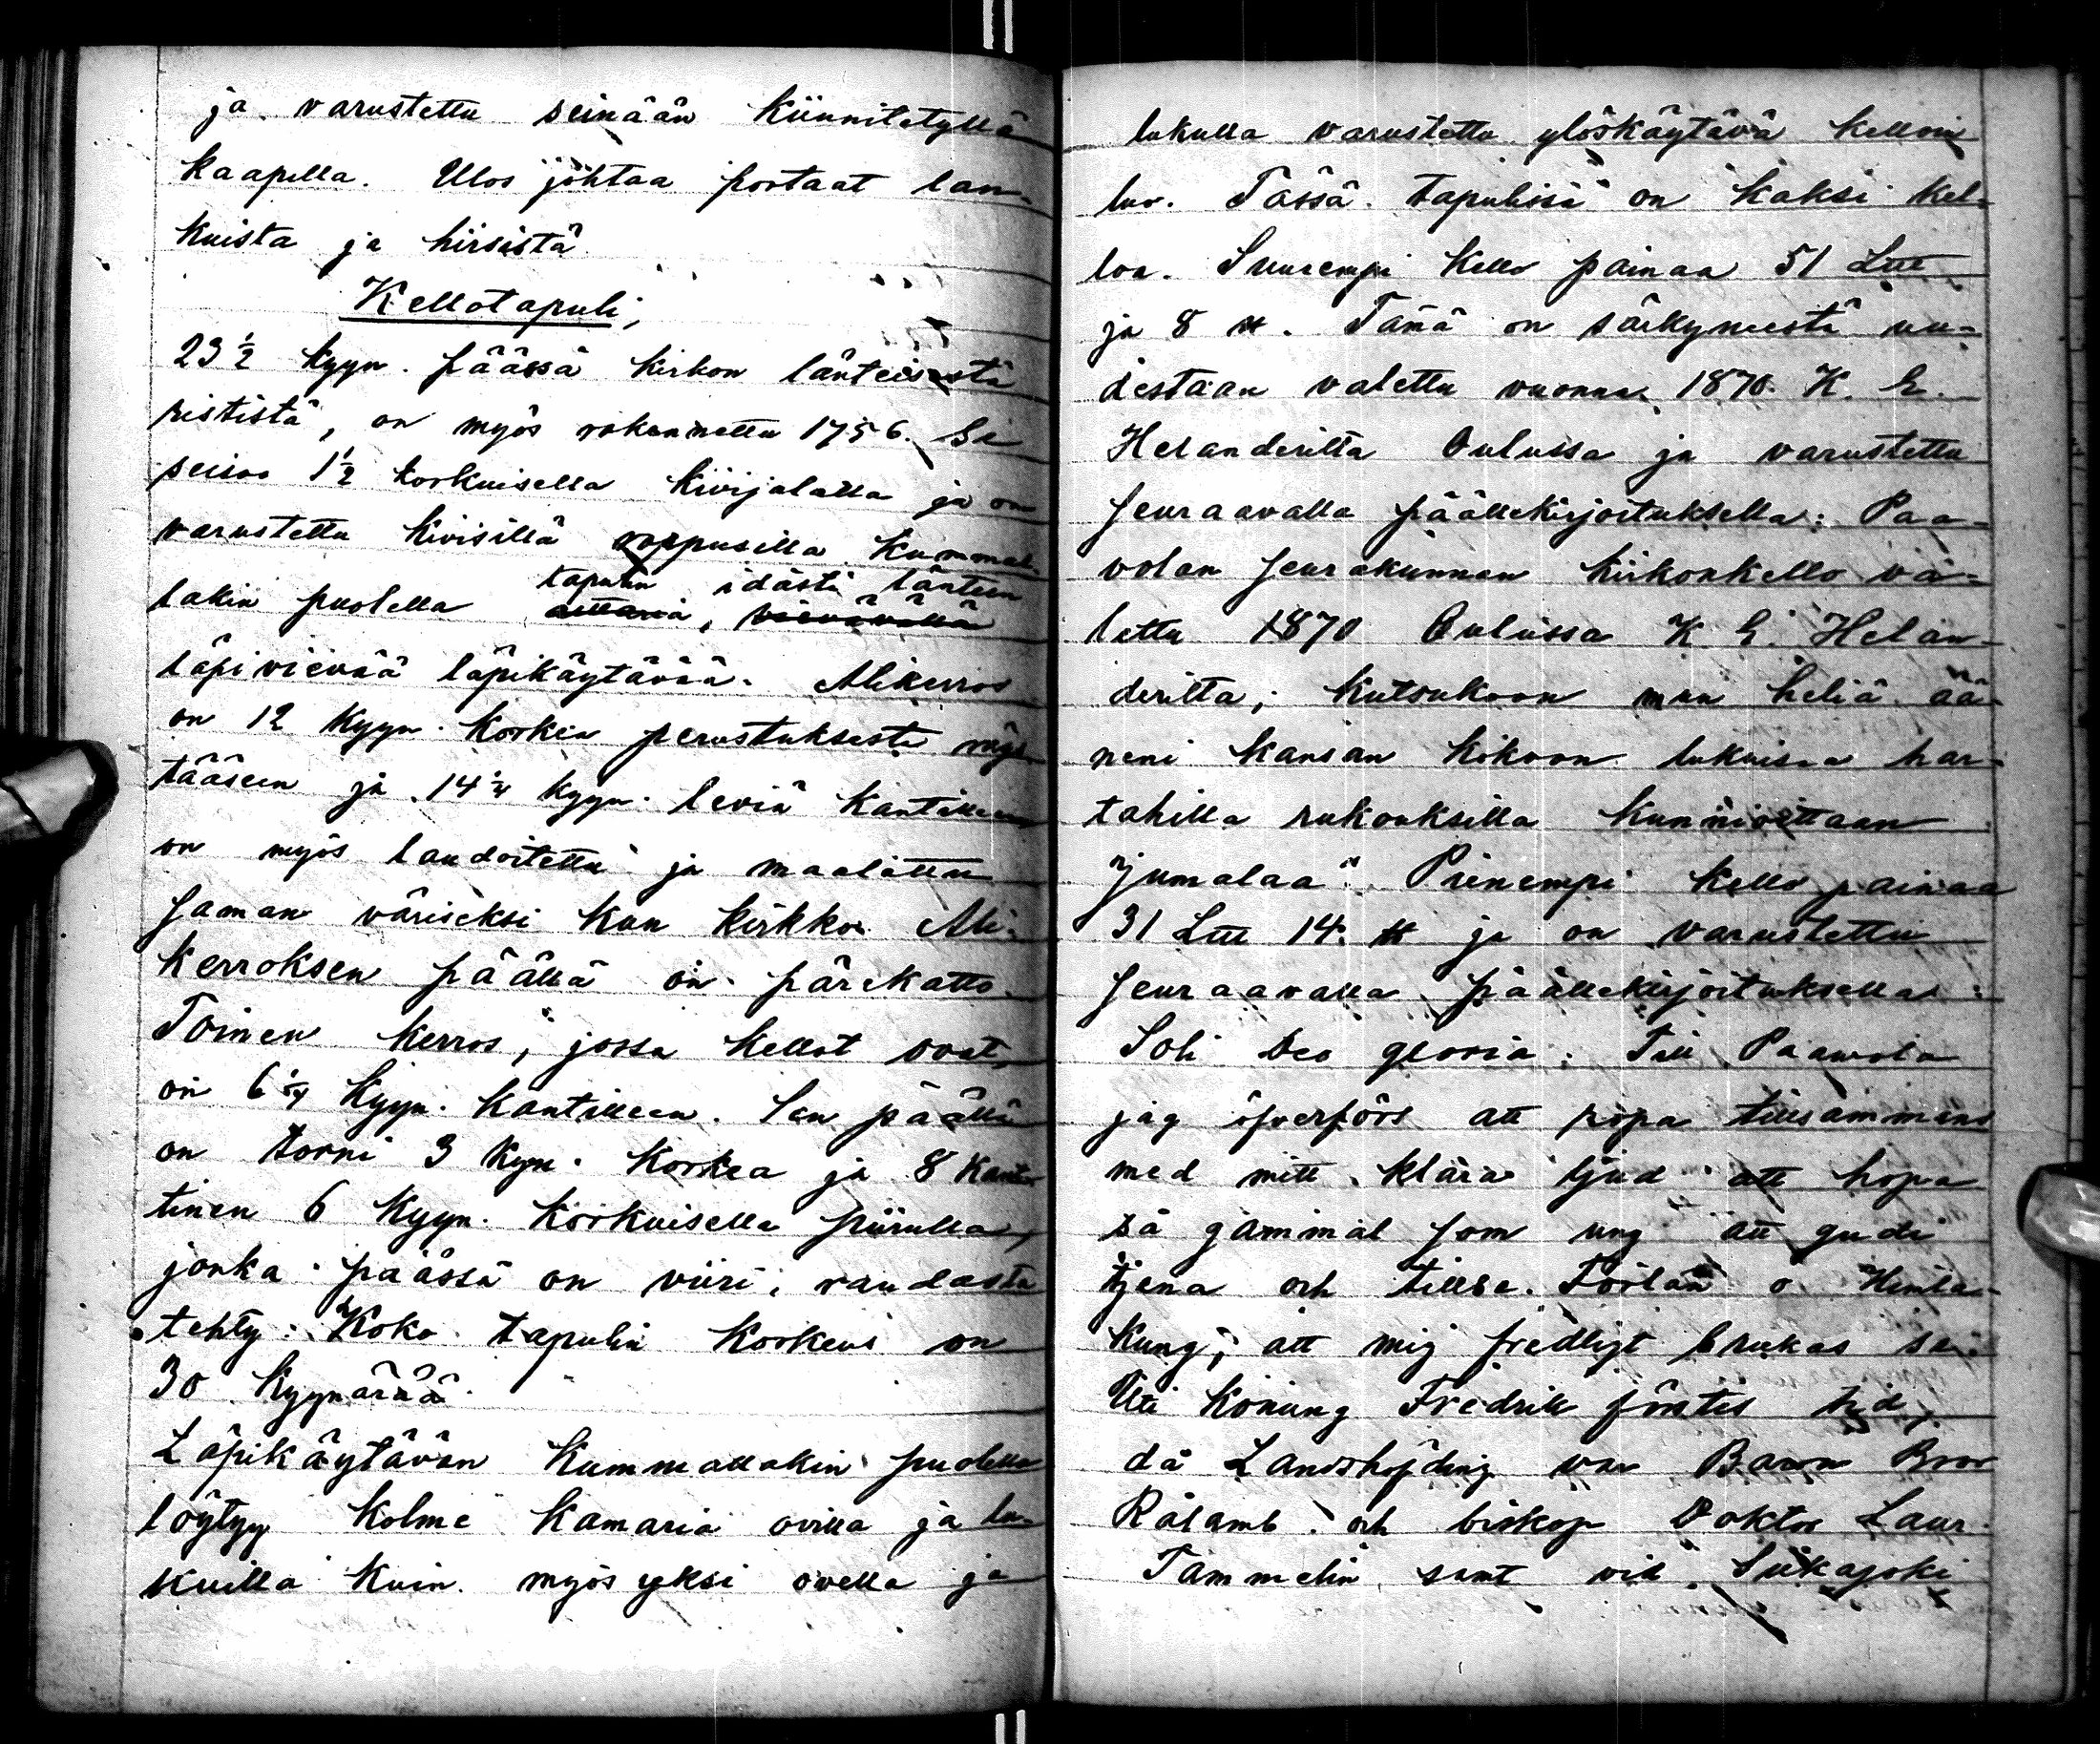 ja varustettu seinään kiinnitetyllä
kaapilla. Ulos johtaa portaat lan-
kuista ja hirsistä
Kellotapuli,
23 1/2 kyyn. päässä kirkon läntisestä
rististä, on myös rakennettu 1756. Se
seisoo 1 1/2 korkuisella kivijalalla ja on
varustettu kivisillä rappusilla kummal-
lakin puolella tapulin idästä länteen
läpivievää läpikäytävää. Alikerros
on 12 kyyn. korkea perustuksesta räys-
tääseen ja 14 1/4 kyyn. leviä kantilleen
on myös laudoitettu ja maalattu
saman väriseksi kun kirkko. Ali-
kerroksen päällä on pärekatto.
Toinen kerros, jossa kellot ovat,
on 6 1/4 kyyn. kantilleen. Sen päällä
on torni 3 kyn. korkea ja 8 kant-
tinen 6 kyyn. korkuisella piirulla,
jonka päässä on viiri, raudasta
tehty. Koko tapulin korkeus on
30 kyynärää.
Läpikäytävän kummallakin puolella
löytyy kolme kamaria ovilla ja lu-
kuilla kuin myös yksi ovella ja
lukulla varustettu ylöskäytävä kelloin
luo. Tässä tapulissa on kaksi kel-
loa. Suurempi kello painaa 51 Ltt
ja 8 tt. Tämä on särkyneestä uu-
destaan valettu vuonna 1870 K. E.
Helanderilta Oulussa ja varustettu
seuraavalla päällekirjoituksella: Paa-
volan seurakunnan kirkonkello va-
lettu 1870 Oulussa K. E. Helan-
derilta; kutsukoon mun heliä ää-
neni kansan kokoon lukuisaa har-
tahilla rukouksilla kunnioittaan
Jumalaa". Pienempi kello painaa
31 Ltt 14 tt ja on varustettu
seuraavalla päällekirjoituksella:
Soli Deo gloria. Till Paavola
jag öfverförs att ropa tillsammans
med mitt klara ljud att hopa
så gammal som ung att gudi
tjena och tillbe. Förlän o Himla-
kung, att mig fredligt brukas sei.
Uti Konung Fredrik förstes tid,
då Landshöfding var Baron Bror
Rålamb och biskop Doktor Laur.
Tammelin samt vid Siikajoki